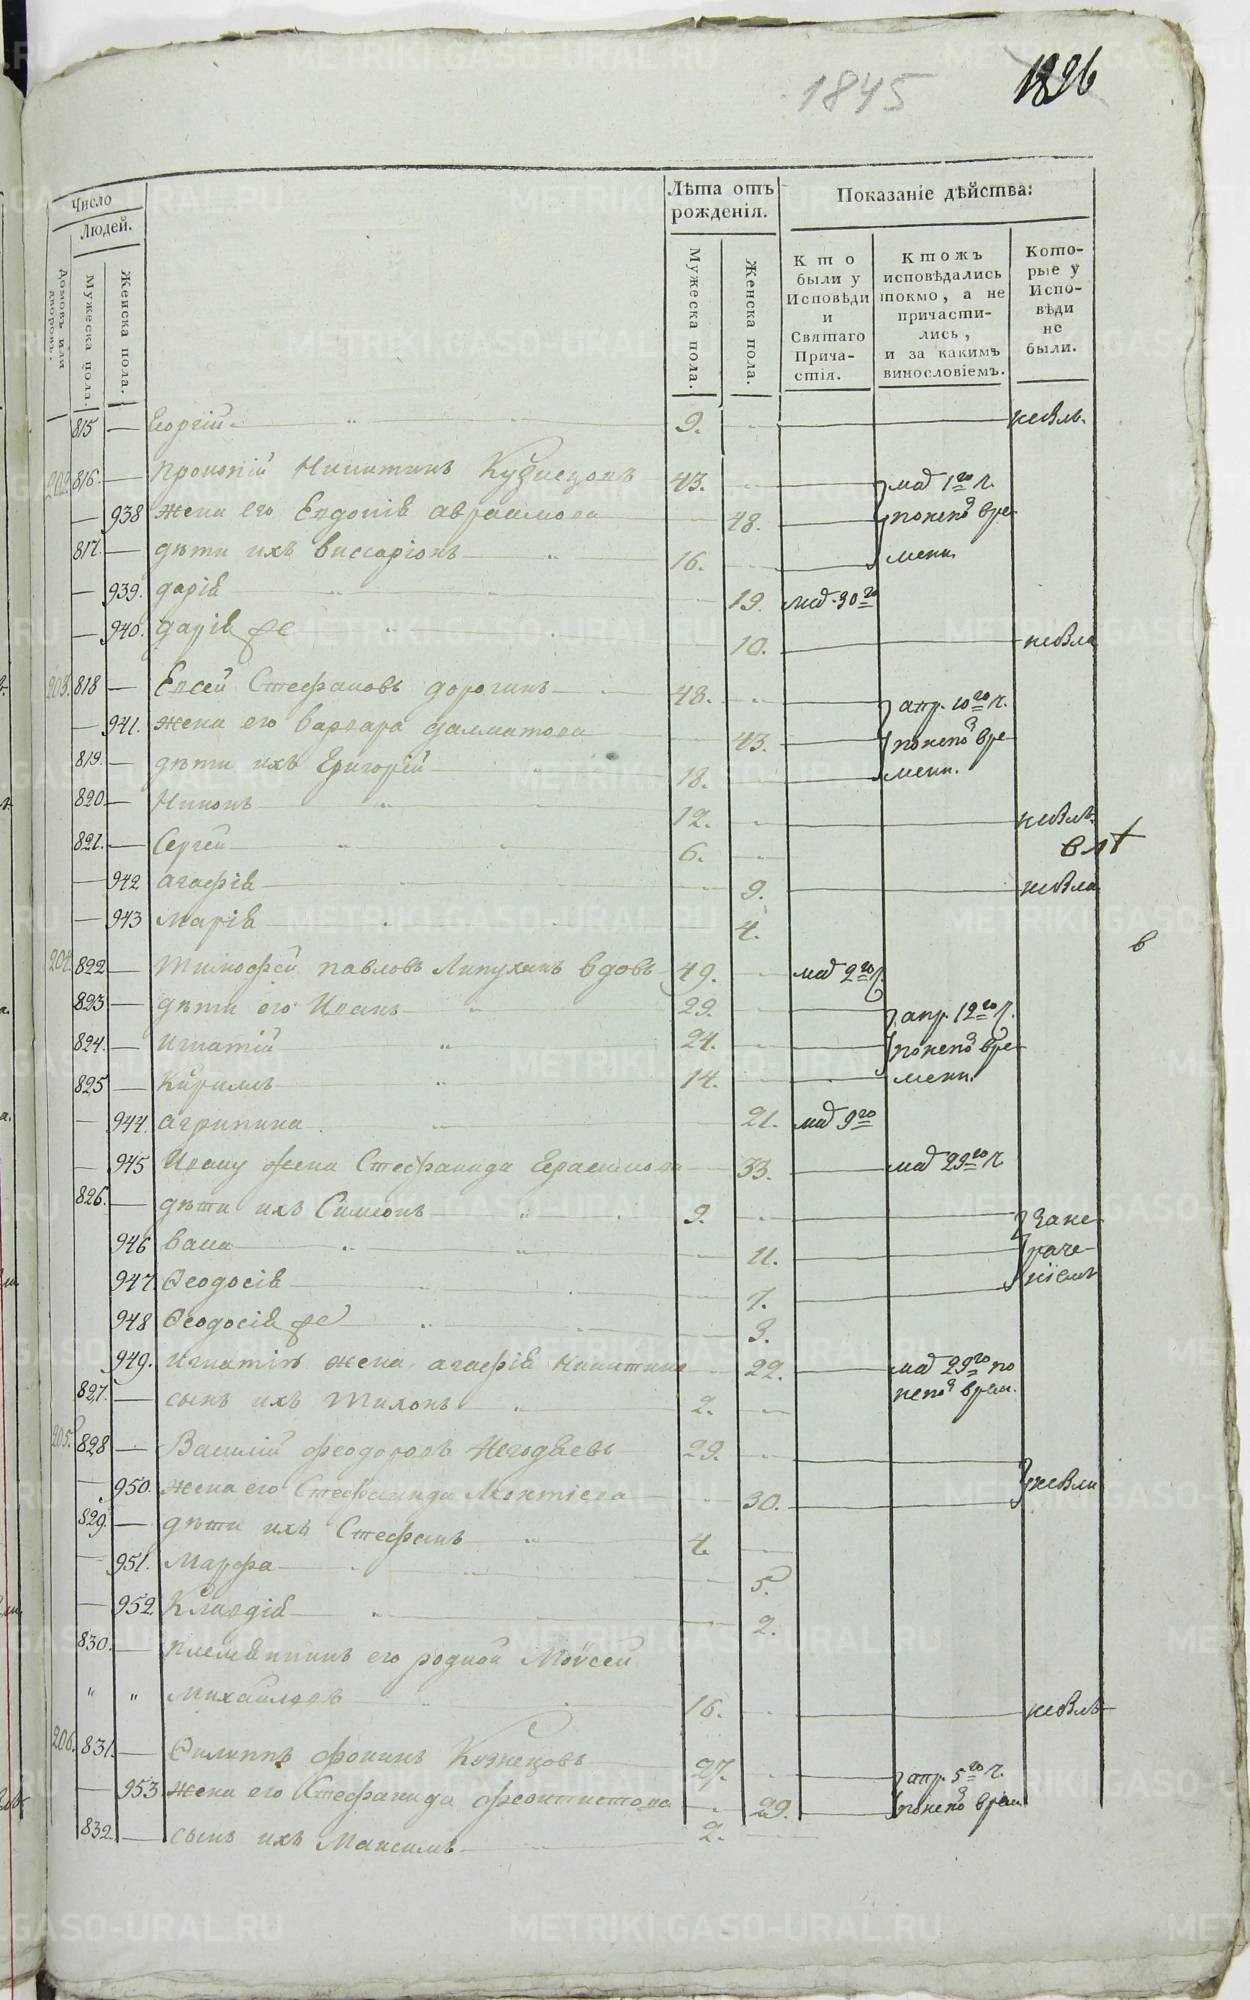 1845
1826
Число
Людей.
Домовъ или дворовъ.
Мужеска пола.
Женска пола.
Лѣта отъ рожденія.
Мужеска пола.
Женска пола.
Показаніе дѣйства:
Кто были у Исповѣди и Святаго Причастія.
Ктожъ исповѣдались токмо, а не причастились, и за какимъ винословіемъ.
Которые у Исповѣди не были.
815 Георгій 9.
202. 816. Прокопій Никитинъ Кузнецовъ 43. мар 1го ч.
938 жена его Евдокія Авраамова 48. по неп вре-
817. дѣти ихъ Виссаріонъ 16. мени.
939. Дарія 19. мар 30го
940. Дарія же 10.
203. 818 Евсей Стефановъ Дорогинъ 48. апр. 10го ч.
941. жена его Варвара Далматова 43. по неп вре-
819. дѣти ихъ Григорей 18. мени.
820. Никонъ 12.
821. Сергей 6.
942 Агафія 9.
943 Марія 4.
204. 822 Тимофей Павловъ Липухинъ вдовъ 49. мар 2го ч.
в
823 дѣти его Иванъ 29. апр. 12го ч.
824. Игнатій 24. по неп вре-
825 Кирилъ 14. мени.
944. Агрипина 21. мар 9го
945 Ивану жена Стефанида Герасимова 33. мар 29го ч.
826. дѣти ихъ Симеонъ 9. За не-
946 Васса 11. раче-
947 Ѳеодосія 7. ніемъ
948 Ѳеодосія же 3.
949. Игнатія жена Агафія Никитина 22. мар 29го по
неп врем.
827. сынъ ихъ Тихонъ 2.
205. 828 Василій Феодоровъ Негодяевъ 29.
950. жена его Стефанида 30.
829. дѣти ихъ Стефанъ 4.
951. Марфа 5.
952 Клавдія 2.
830. племянникъ его родной Моѵсей
" " Михайловъ 16.
206. 831. Филиппъ Фокинъ Кузнецовъ 27. апр. 5го ч.
953 жена его Стефанида Феоктистова 29. по неп врем.
832. сынъ ихъ Максимъ 2.